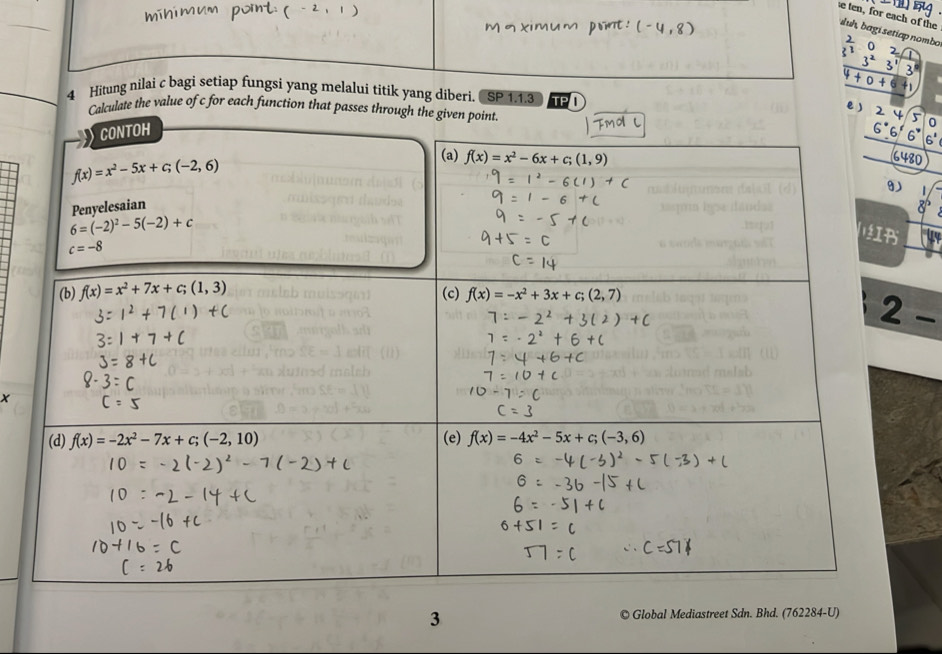 minimum point: (-2, 1)
maximum point: (-4, 8)
4 Hitung nilai c bagi setiap fungsi yang melalui titik yang diberi. SP 1.1.3 TP 1
Calculate the value of c for each function that passes through the given point.
Find c
CONTOH
f(x) = x² − 5x + c; (−2, 6)
Penyelesaian
6 = (−2)² − 5(−2) + c
c = −8
(a) f(x) = x² − 6x + c; (1, 9)
9 = 1² - 6(1) + c
9 = 1 - 6 + c
9 = -5 + c
9+5 = c
c = 14
(b) f(x) = x² + 7x + c; (1, 3)
3 = 1² + 7(1) + c
3 = 1 + 7 + c
3 = 8 + c
8-3 = c
c = 5
(c) f(x) = −x² + 3x + c; (2, 7)
7 = -2² + 3(2) + c
7 = -2² + 6 + c
7 = 4 + 6 + c
7 = 10 + c
10 - 7 = c
c = 3
(d) f(x) = −2x² − 7x + c; (−2, 10)
10 = -2(-2)² - 7(-2) + c
10 = -2 - 14 + c
10 = -16 + c
10+16 = c
c = 26
(e) f(x) = −4x² − 5x + c; (−3, 6)
6 = -4(-3)² - 5(-3) + c
6 = -36 -15 + c
6 = -51 + c
6+51 = c
57 = c ∴ c = 57
3
© Global Mediastreet Sdn. Bhd. (762284-U)
e ten, for each of the
duh, bagi setiap nombo
2 0 2 1
3³ 3² 3¹ 3⁰
+ 0 + 6 + 1
e) 2 4 5 0
6480
g)
2 –
x